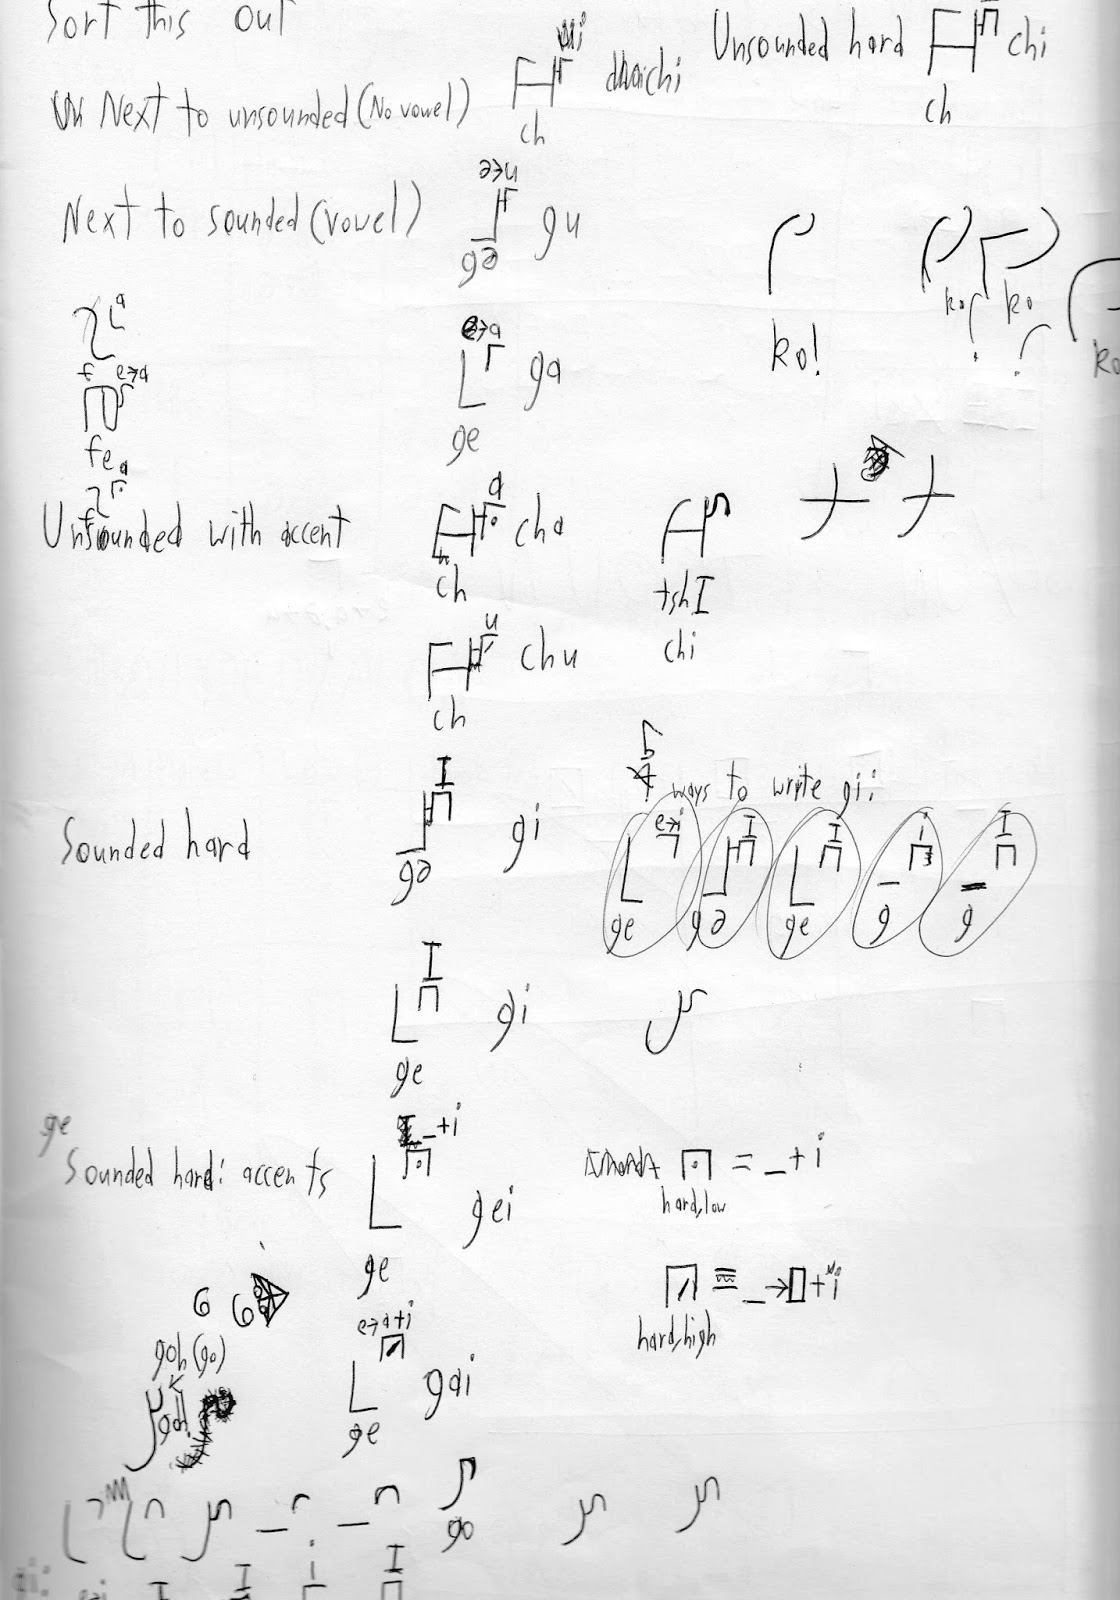 Sort this out
Unsounded hard chi
ch
Next to unsounded (No vowel) chi
ch
Next to sounded (vowel) gu
ə→u
gə
a
e→a
ga
ge
ko!
ko
ko
f e→a
fe
a
Unsounded with accent cha
a
ch
tshI
chi
u
chu
ch
5 ways to write gi:
I
Sounded hard gi
gə
e→i I I i I
ge gə ge g g
I
gi
ge
ge
_+i
Sounded hard: accents gei
ge
= _+i
hard,low
hard,high
goh (go)
e→a+i
gai
ge
go
gi:
I I i I